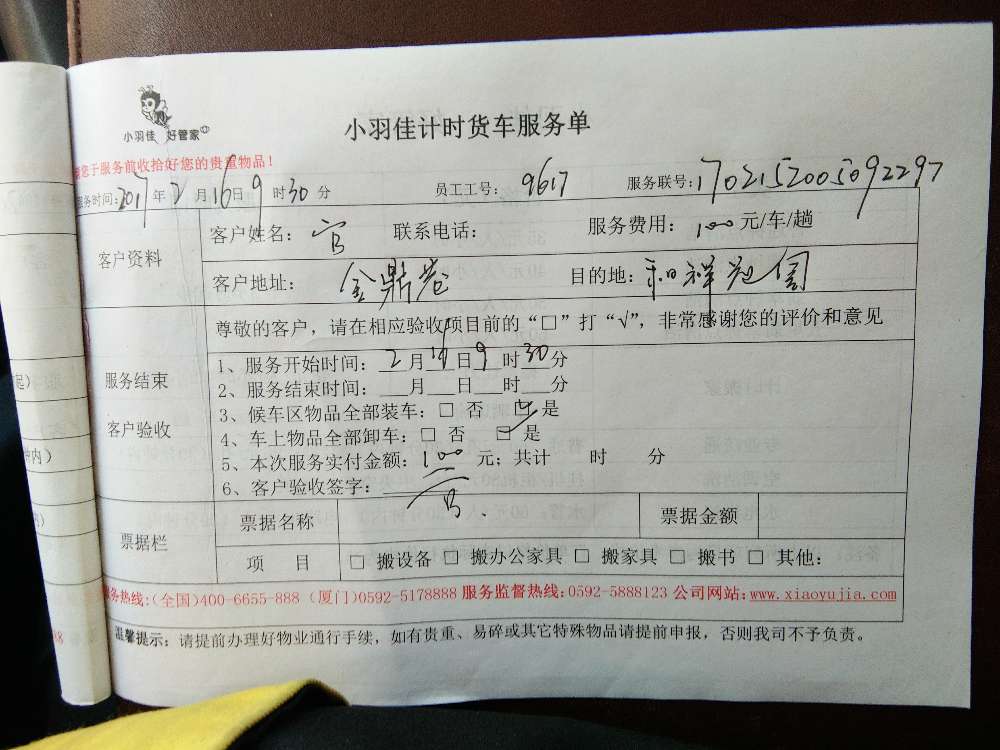 小羽佳 好管家
小羽佳计时货车服务单
您于服务前收拾好您的贵重物品！
服务时间：2017年2月16日9时30分 员工工号：9617 服务联号：1702152005092297
客户资料
客户姓名：官 联系电话： 服务费用：100元/车/趟
客户地址：金鼎巷 目的地：和祥苑
尊敬的客户，请在相应验收项目前的“□”打“√”，非常感谢您的评价和意见
服务结束
客户验收
1、服务开始时间：2月16日9时30分
2、服务结束时间：___月___日___时___分
3、候车区物品全部装车：□ 否 ☑ 是
4、车上物品全部卸车：□ 否 ☑ 是
5、本次服务实付金额：100元；共计 时 分
6、客户验收签字：官
票据栏
票据名称 票据金额
项 目 □ 搬设备 □ 搬办公家具 □ 搬家具 □ 搬书 □ 其他：
服务热线：(全国)400-6655-888 (厦门)0592-5178888 服务监督热线：0592-5888123 公司网站：www.xiaoyujia.com
温馨提示：请提前办理好物业通行手续，如有贵重、易碎或其它特殊物品请提前申报，否则我司不予负责。